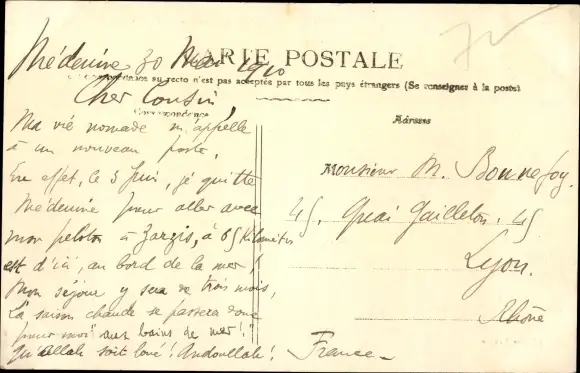 CARTE POSTALE
Médenine 30 Mai 1910
La Correspondance au recto n'est pas acceptée par tous les pays étrangers (Se renseigner à la poste)
Cher Cousin,
Correspondance
Adresse
Ma vie nomade m'appelle
à un nouveau poste,
En effet, le 3 Juin, je quitte
Médenine pour aller avec
mon peloton à Zarzis, à 65 Kilomètres
est d'ici, au bord de la mer!
Mon séjour y sera de trois mois,
La saison chaude se passera donc
pour moi "aux bains de mer!"
Qu'Allah soit loué! !
Monsieur M. Bonnefoy.
45, Quai Gailleton. 45
Lyon.
Rhône
France